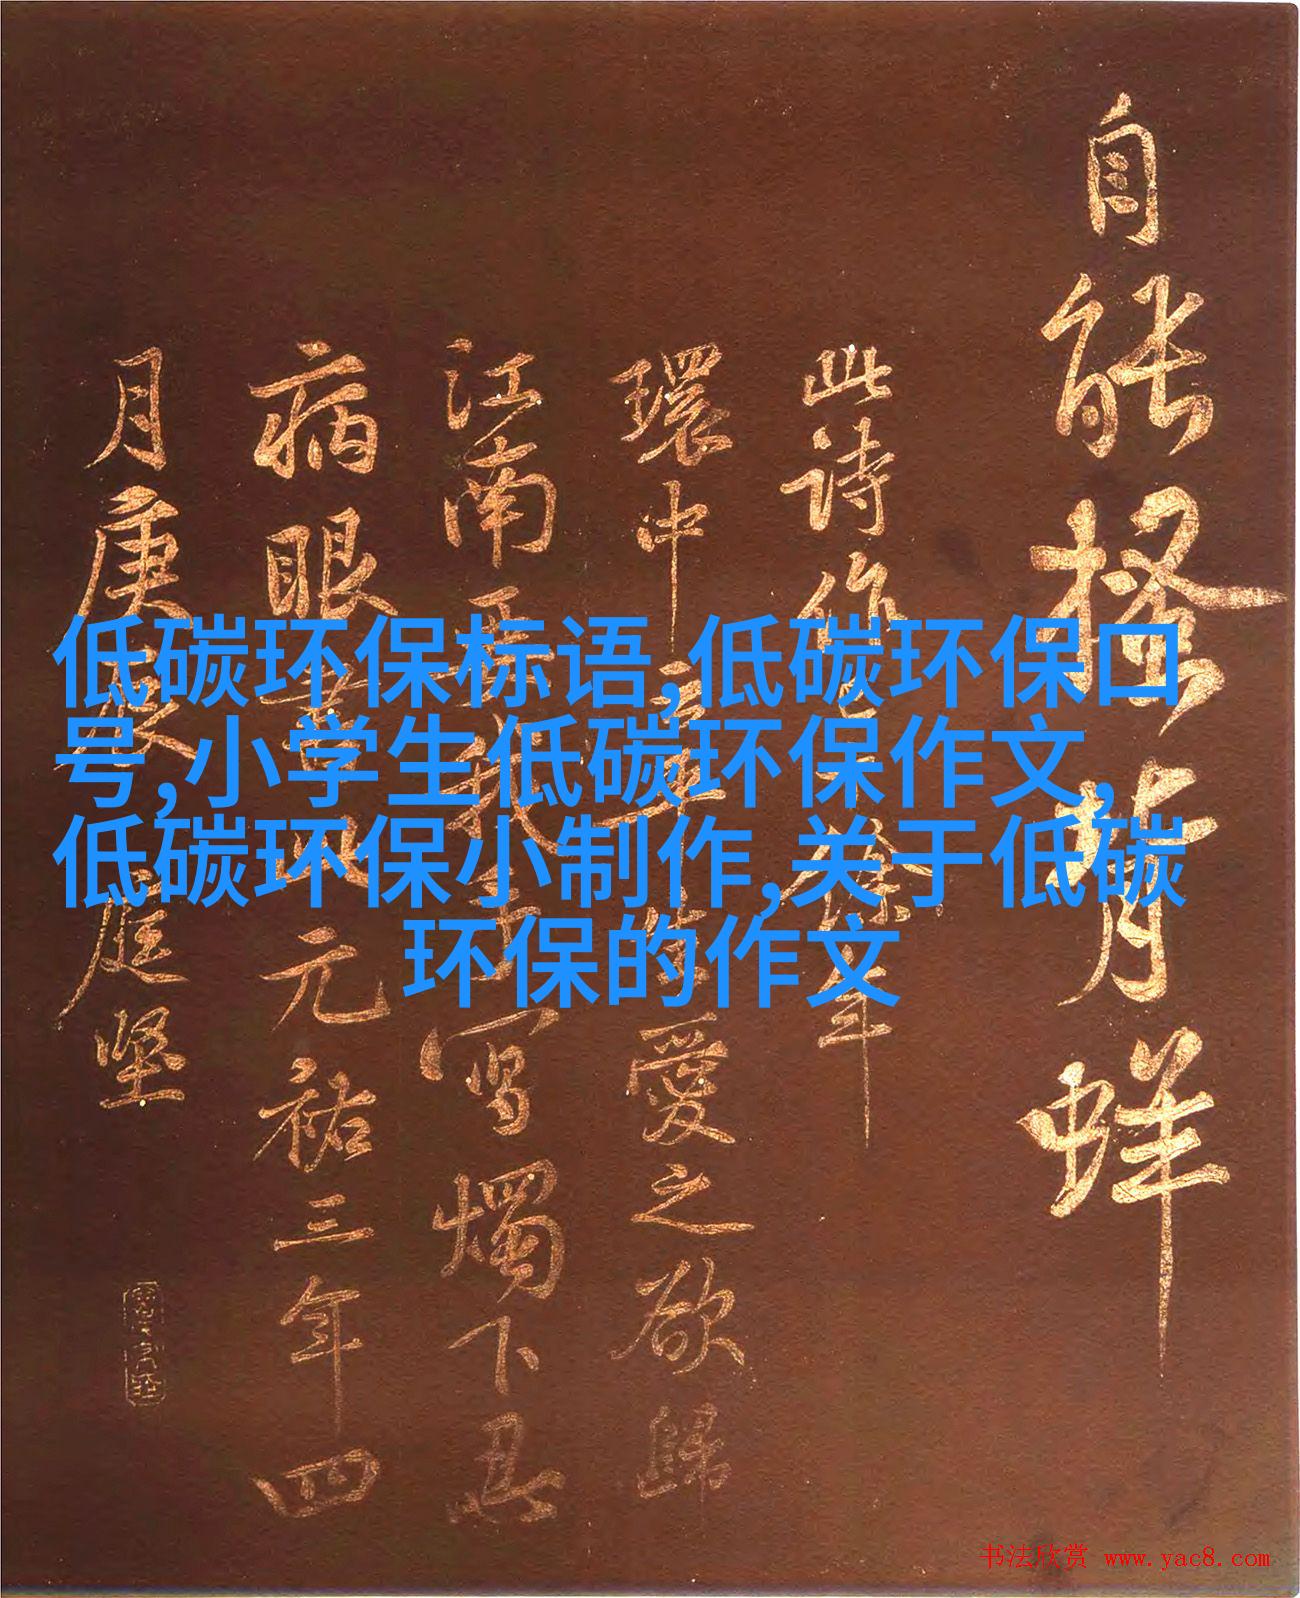 低碳环保标语,低碳环保口
号,小学生低碳环保作文,
低碳环保小制作,关于低碳
环保的作文
自能搔背痒
此诗作 余年
環中 愛之欲歸
江南 寫燭下忍
病眼書 元祐三年四
月庚辰庭堅
书法欣赏 www.yac8.com